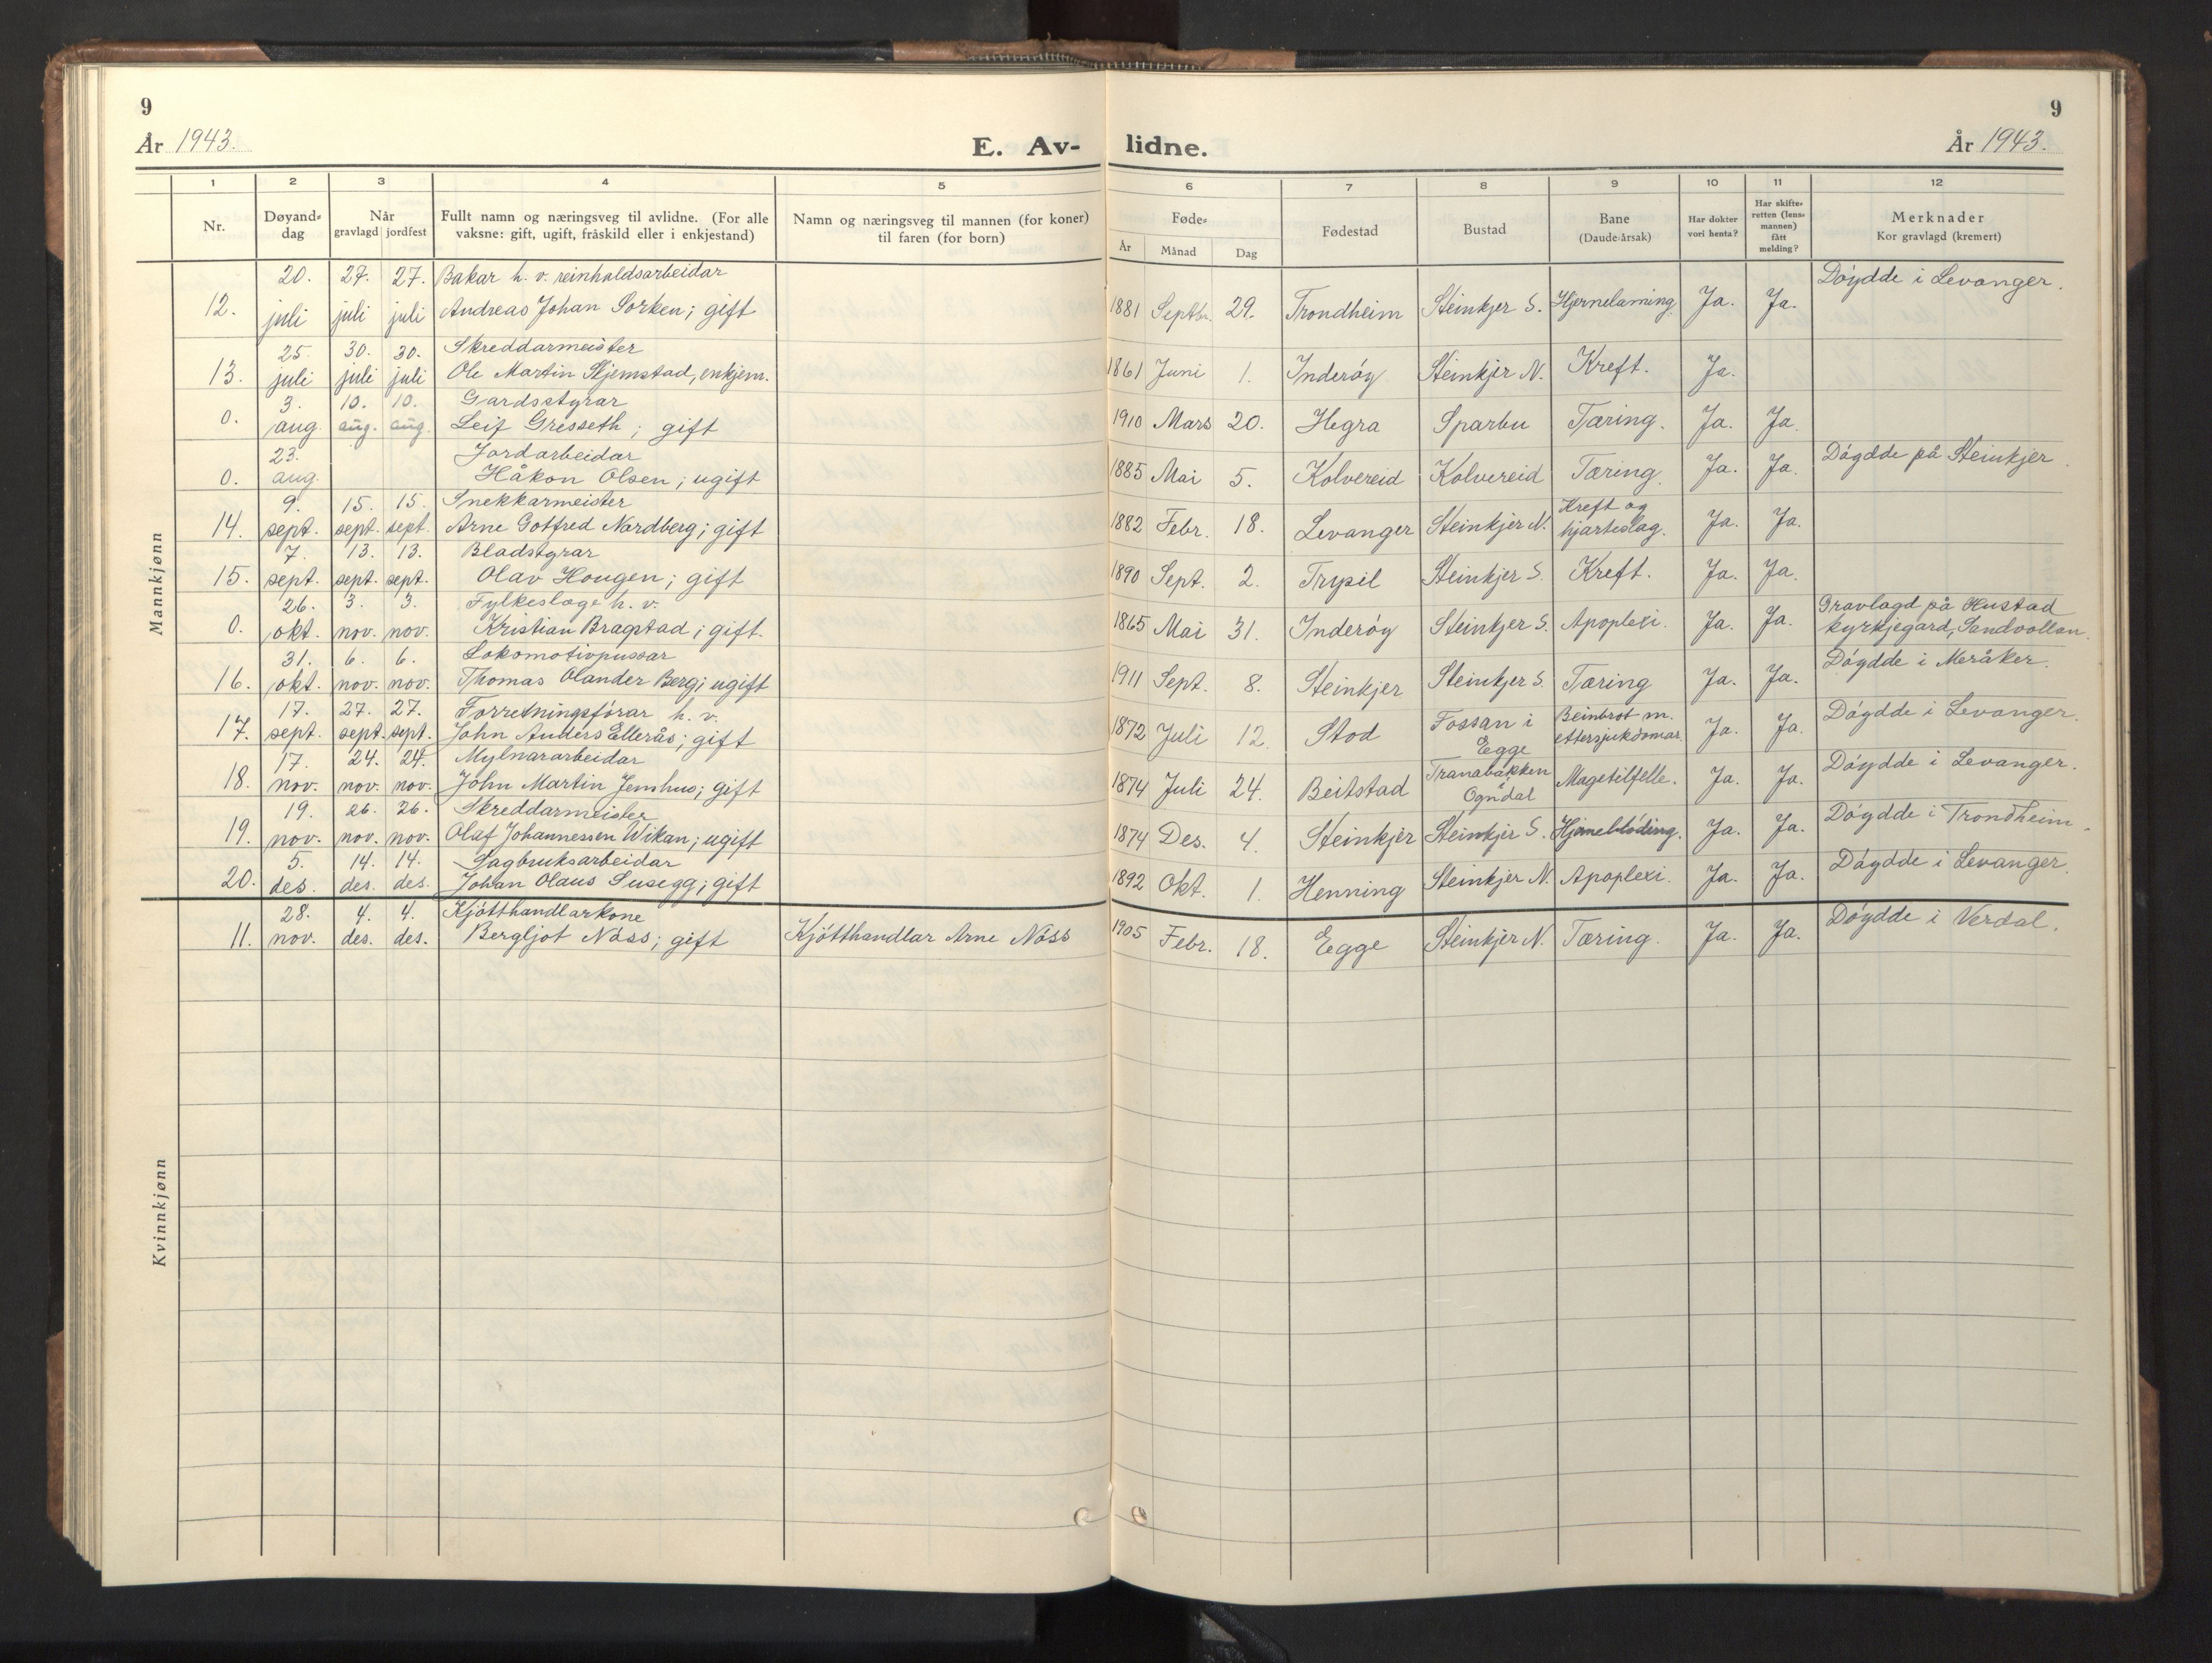 9
9
År 1943.
E. Av-
lidne.
År 1943.
1 2 3 4 5 6 7 8 9 10 11 12
Nr.
Døyand-
dag
Når
gravlagd jordfest
Fullt namn og næringsveg til avlidne. (For alle
vaksne: gift, ugift, fråskild eller i enkjestand)
Namn og næringsveg til mannen (for koner)
til faren (for born)
Føde-
År Månad Dag
Fødestad
Bustad
Bane
(Daude-årsak)
Har dokter
vori henta?
Har skifte-
retten (lens-
mannen)
fått
melding?
Merknader
Kor gravlagd (kremert)
Mannkjønn
20. 27. 27. Bakar h. v. reinhaldsarbeidar Döydde i Levanger.
12. juli juli juli Andreas Johan Sorken; gift 1881 Septbr. 29. Trondheim Steinkjer S. Hjernelaming Ja. Ja.
25. 30. 30. Skreddarmeister
13. juli juli juli Ole Martin Skjemstad, enkjem. 1861 Juni 1. Inderöy Steinkjer N. Kreft. Ja.
3. 10. 10. Gardsstyrar
0. aug aug. aug. Leif Gresseth; gift 1910 Mars 20. Hegra Sparbu Tæring. Ja. Ja.
23. Jordarbeidar Döydde på Steinkjer.
0. aug. Håkon Olsen; ugift 1885 Mai 5. Kolvereid Kolvereid Tæring. Ja. Ja.
9. 15. 15. Snekkarmeister Kreft og
14. sept. sept. sept. Arne Gotfred Nordberg; gift 1882 Febr. 18. Levanger Steinkjer N. hjarteslag. Ja. Ja.
7. 13. 13. Bladstyrar
15. sept. sept. sept. Olav Hougen; gift 1890 Sept. 2. Trysil Steinkjer S. Kreft. Ja. Ja.
26. 3. 3. Fylkeslæge h. v. Gravlagd på Hustad
0. okt. nov. nov. Kristian Bragstad; gift. 1865 Mai 31. Inderöy Steinkjer S. Apoplexi. Ja. Ja. kyrkjegard, Sandvollan.
31. 6. 6. Lokomotivpussar Döydde i Meråker.
16. okt. nov. nov. Thomas Olander Berg; ugift 1911 Sept. 8. Steinkjer Steinkjer S. Tæring Ja. Ja.
17. 27. 27. Forretningsförar h. v. Fossan i Beinbrot m. Döydde i Levanger.
17. sept. sept. sept. John Anders Ellerås; gift 1872 Juli 12. Stod Egge ettersjukdomar. Ja. Ja.
17. 24. 24. Mylnararbeidar Tranabakken Döydde i Levanger.
18. nov. nov. nov. John Martin Jenshus; gift 1874 Juli 24. Beitstad Ogndal Magetilfelle. Ja. Ja.
19. 26. 26. Skreddarmeister Döydde i Trondheim.
19. nov. nov. nov. Olaf Johannessen Wikan; ugift 1874 Des. 4. Steinkjer Steinkjer S. Hjerneblöding. Ja. Ja.
5. 14. 14. Sagbruksarbeidar Döydde i Levanger.
20. des. des. des. Johan Olaus Susegg; gift 1892 Okt. 1. Henning Steinkjer N. Apoplexi. Ja. Ja.
Kvinnkjønn
28. 4. 4. Kjötthandlarkone Döydde i Verdal.
11. nov. des. des. Bergljot Näss; gift Kjötthandlar Arne Näss 1905 Febr. 18. Egge Steinkjer N. Tæring. Ja. Ja.